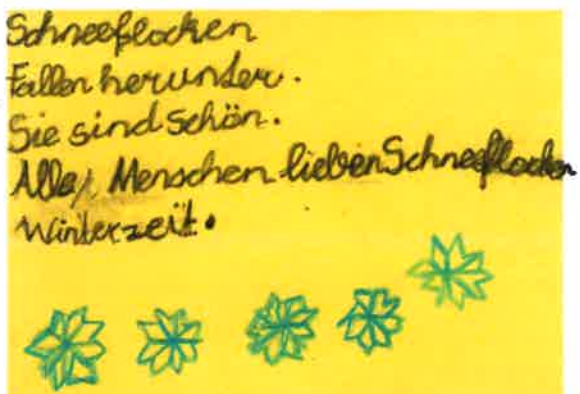 Schneeflocken
Fallen herunder.
Sie sind schön.
Alle, Menschen lieben Schneeflocken
Winterzeit.